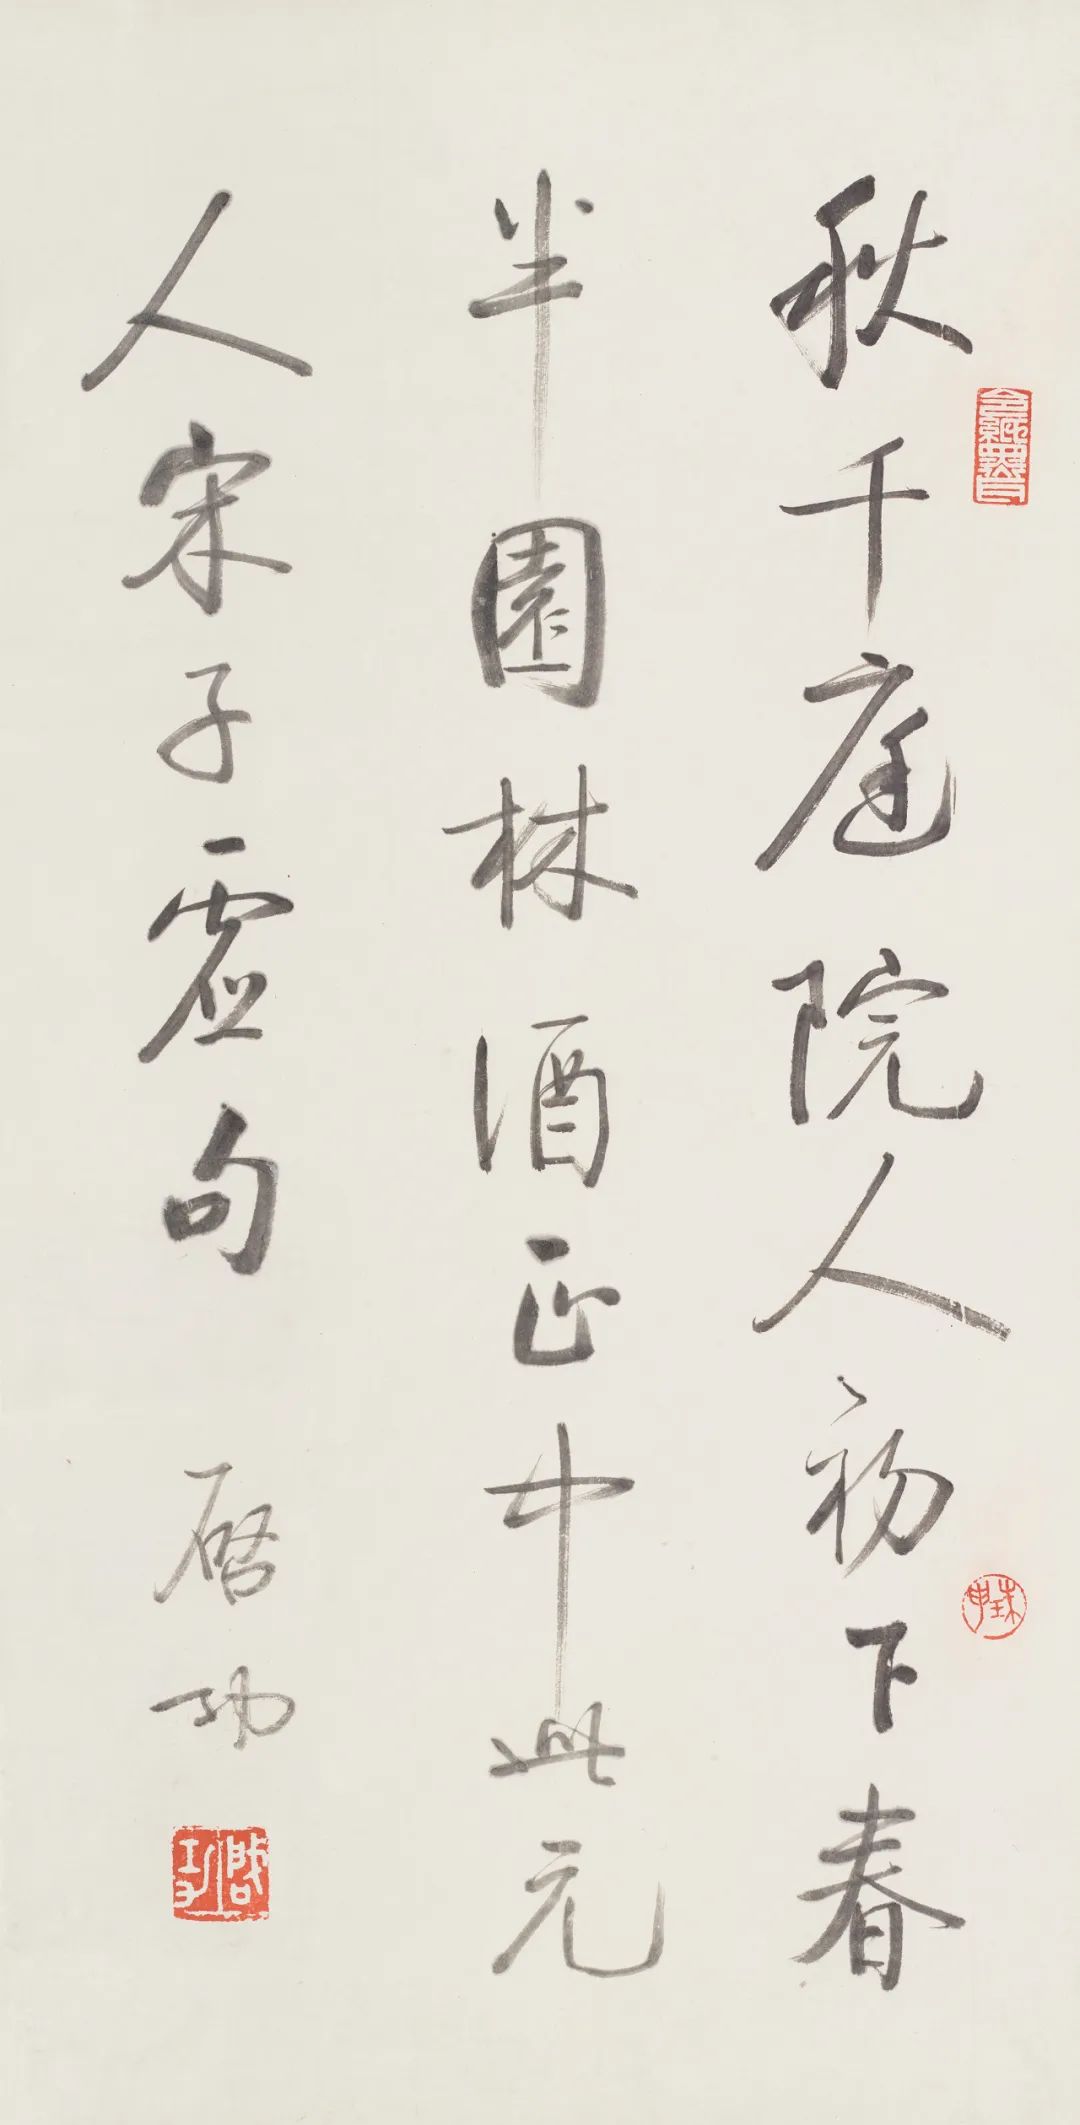 秋千庭院人初下春
半園林酒正中此元
人宋子虛句
啓功
啓功